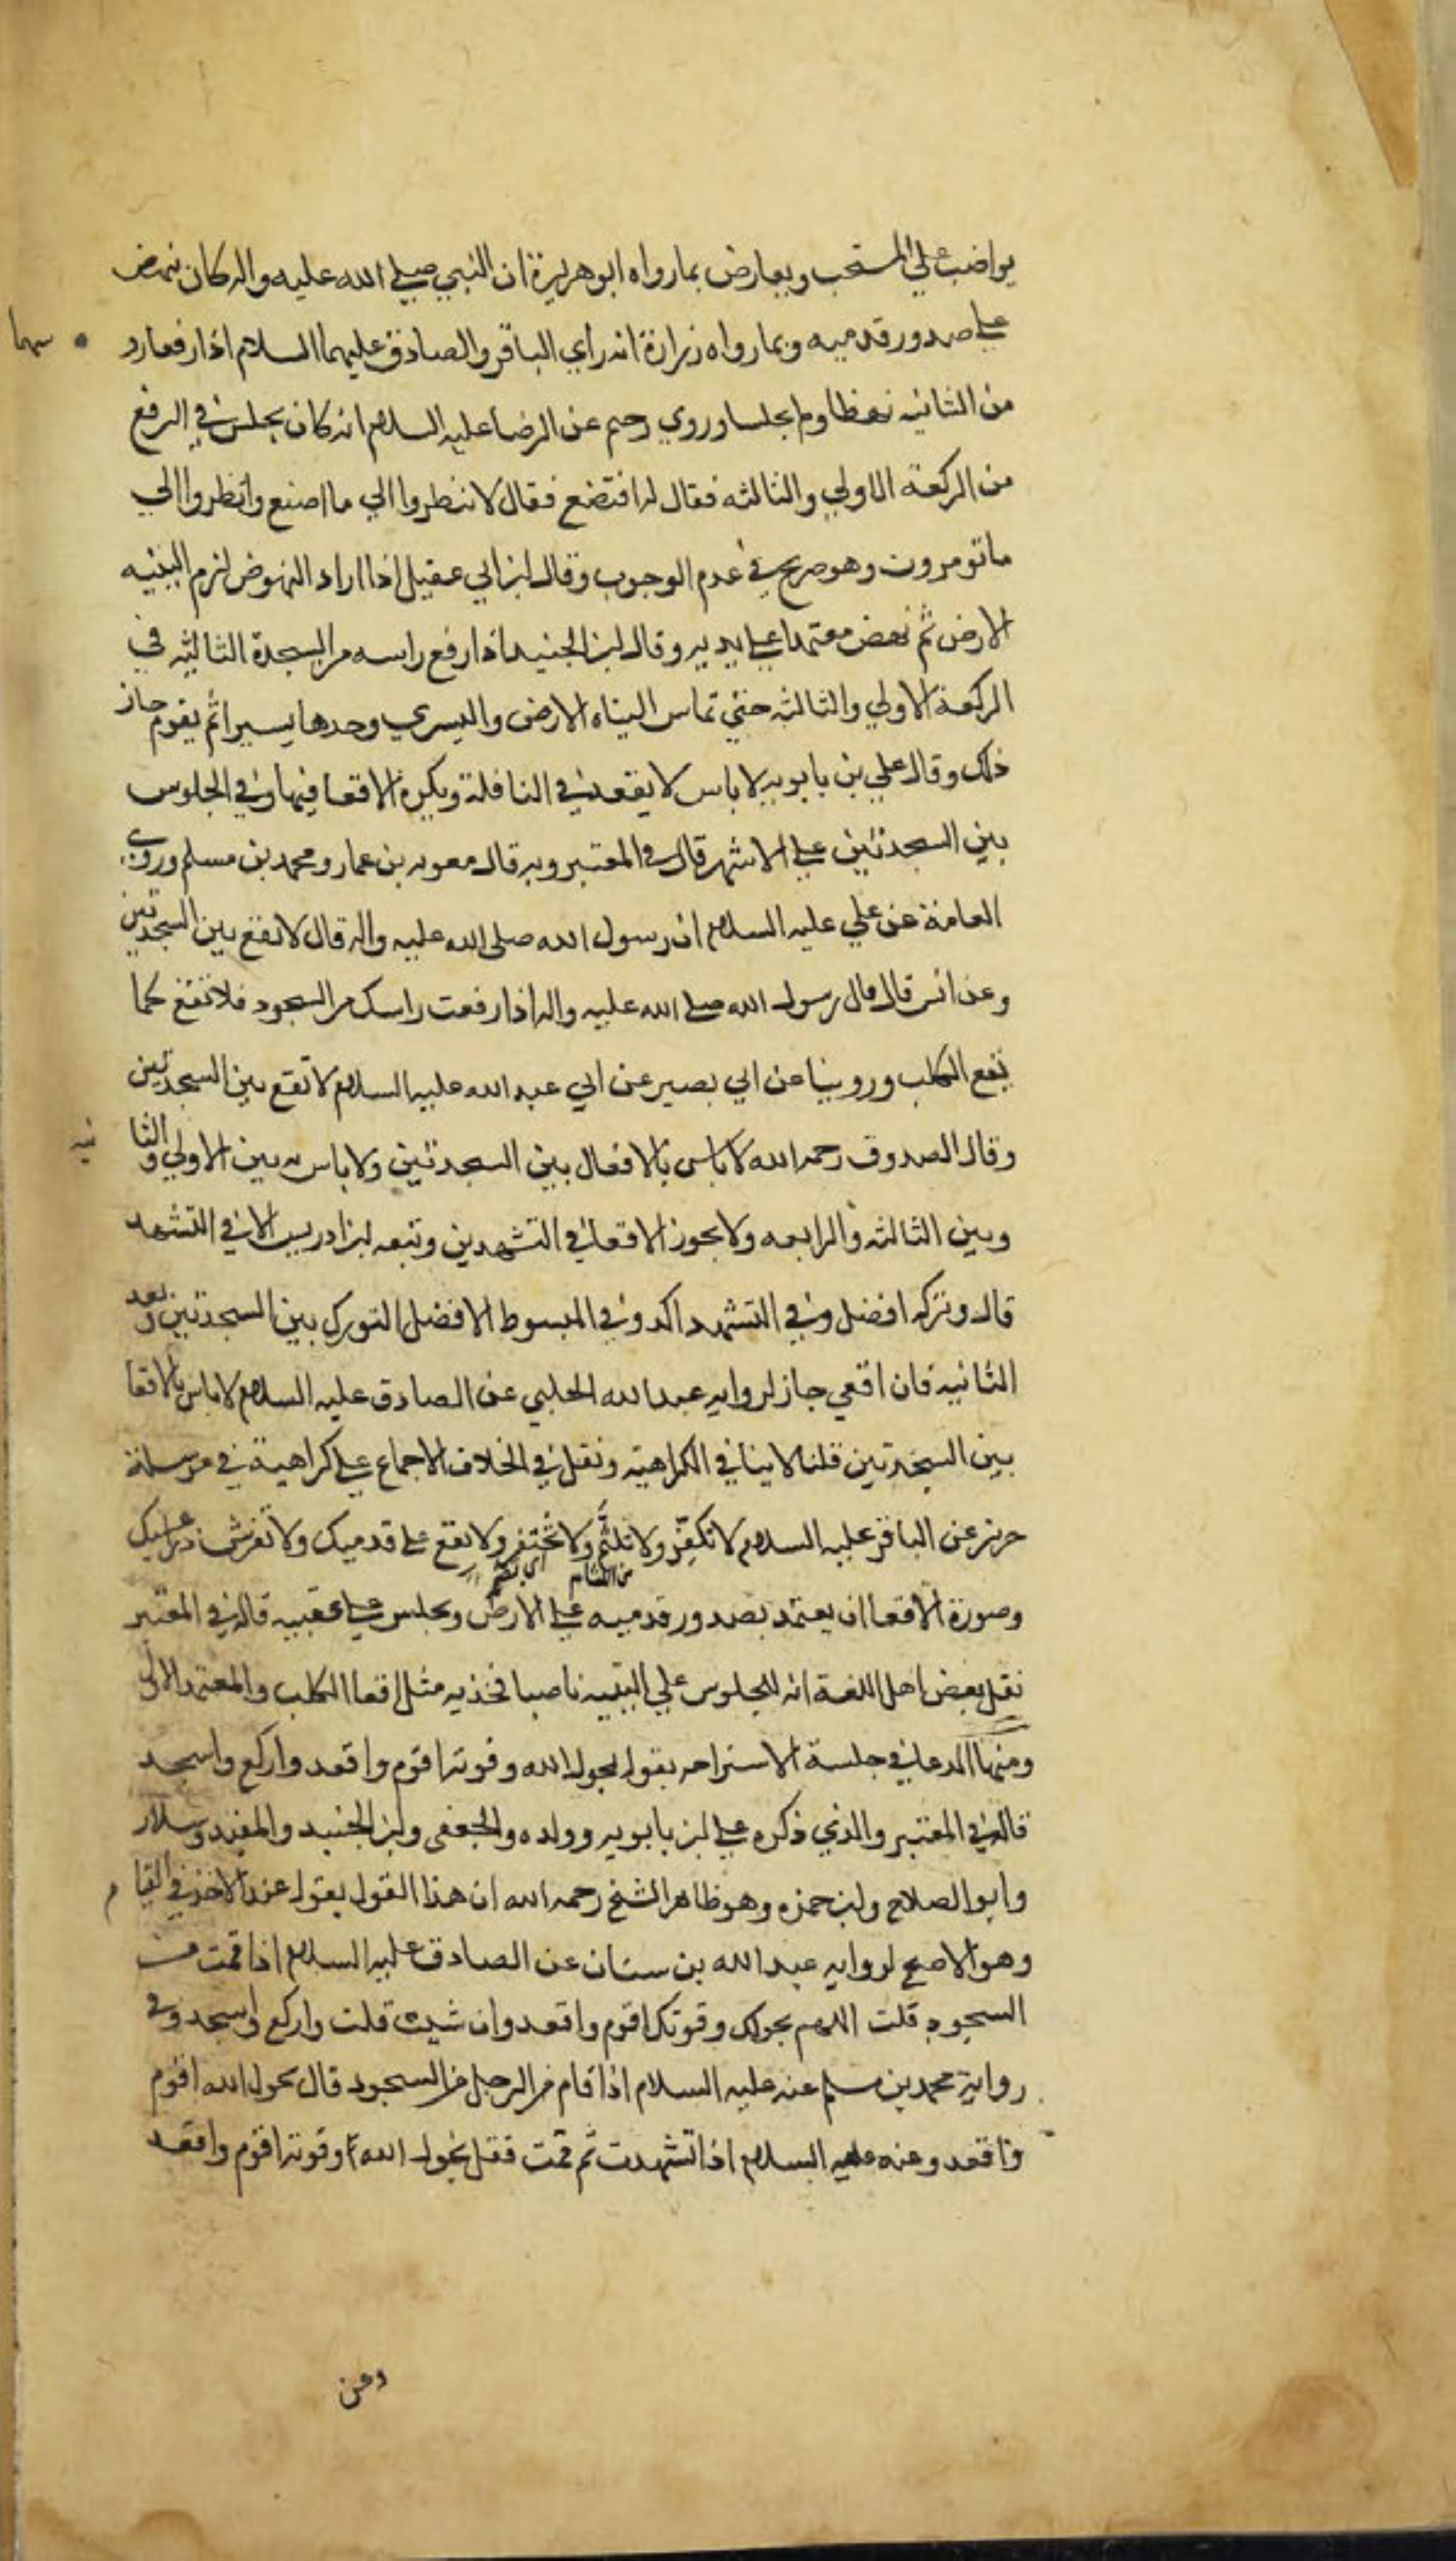 يواضب علي المستحب ويعارض بما رواه ابو هريرة ان النبي صلي الله عليه واله كان نهض
علي صدور قدميه وبما رواه زرارة انه راي الباقر والصادق عليهما السلام اذا رفعا روسهما
من الثانيه نهظا ولم يجلسا وروي رحيم عن الرضا عليه السلام انه كان يجلس في الرفع
من الركعة الاولي والثالثه فقال له افتضع فقال لا تنظروا الي ما اصنع وانظروا الي
ما تومرون وهو صريح في عدم الوجوب وقال ابن ابي عقيل اذا اراد النهوض لزم اليتيه
الارض ثم نهض معتمدا علي يديه وقال ابن الجنيد اذا رفع راسه من السجدة الثانيه في
الركعة الاولي والثالثه حتي تماس اليتاه الارض واليسري وحدها يسيرا ثم يقوم جاز
ذلك وقال علي بن بابويه لا باس لا يقعد في النافلة ويكره الاقعا فيها وفي الجلوس
بين السجدتين علي الاشهر قال في المعتبر وبه قال معويه بن عمار ومحمد بن مسلم وروي
العامة عن علي عليه السلام ان رسول الله صلى الله عليه واله قال لا تقع بين السجدتين
وعن انس قال قال رسول الله صلي الله عليه واله اذا رفعت راسك من السجود فلا تقع كما
يقع الكلب وروينا عن ابي بصير عن ابي عبد الله عليه السلام لا تقع بين السجدتين
وقال الصدوق رحمه الله لا باس بالاقعال بين السجدتين ولا باس به بين الاولي والثانيه
وبين الثالثه والرابعه ولا يجوز الاقعا في التشهدين وتبعه ابن ادريس الا في التشهد
قال وتركه افضل وفي التشهد اكد وفي المبسوط الافضل التورك بين السجدتين وبعد
الثانيه فان اقعي جاز لروايه عبد الله الحلبي عن الصادق عليه السلام لا باس بالاقعا
بين السجدتين قلنا لا ينافي الكراهية ونقل في الخلاف الاجماع علي كراهية في مرسلة
حريز عن الباقر عليه السلام لا تكفِّر ولا تلثَّم ولا تحتفز ولا تقع علي قدميك ولا تفرش ذراعيك
من اللثام
وصورة الاقعا ان يعتمد بصدور قدميه علي الارض ويجلس علي عقبيه قاله في المعتبر
نقل بعض اهل اللغة انه الجلوس علي اليتيه ناصبا فخذيه مثل اقعا الكلب والمعتمد الاول
ومنها الدعا في جلسة الاستراحه بقوله بحول الله وقوته اقوم واقعد واركع واسجد
قاله في المعتبر والذي ذكره علي ابن بابويه وولده والجعفى وابن الجنيد والمفيد وسلار
وابو الصلاح وابن حمزه وهو ظاهر الشيخ رحمه الله ان هذا القول يقوله عند الاخذ في القيام
وهو الاصح لروايه عبد الله بن سنان عن الصادق عليه السلام اذا قمت من
السجود قلت اللهم بحولك وقوتك اقوم واقعد وان شيت قلت واركع واسجد وفي
رواية محمد بن مسلم عنه عليه السلام اذا قام الرجل من السجود قال بحول الله اقوم
واقعد وعنه عليه السلام اذا تشهدت ثم قمت فقل بحول الله وقوته اقوم واقعد
وعن